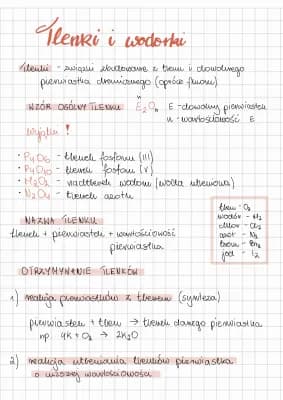 Tlenki i wodorki
Tlenki - związki zbudowane z tlenu i dowolnego
pierwiastka chemicznego (oprócz fluoru)
WZÓR OGÓLNY TLENKU E₂Oₙ E - dowolny pierwiastek
n
n - wartościowość E
Wyjątki !
• P₄O₆ - tlenek fosforu (III)
• P₄O₁₀ - tlenek fosforu (V)
• H₂O₂ - nadtlenek wodoru (woda utleniona)
• N₂O₄ - tlenek azotu
tlen - O₂
wodór - H₂
chlor - Cl₂
azot - N₂
brom - Br₂
jod - I₂
NAZWA TLENKU
tlenek + pierwiastek + wartościowość
pierwiastka
OTRZYMYWANIE TLENKÓW
1) reakcja pierwiastków z tlenem (synteza)
pierwiastek + tlen → tlenek danego pierwiastka
np. 4K + O₂ → 2K₂O
2) reakcja utleniania tlenków pierwiastka
o niższej wartościowości